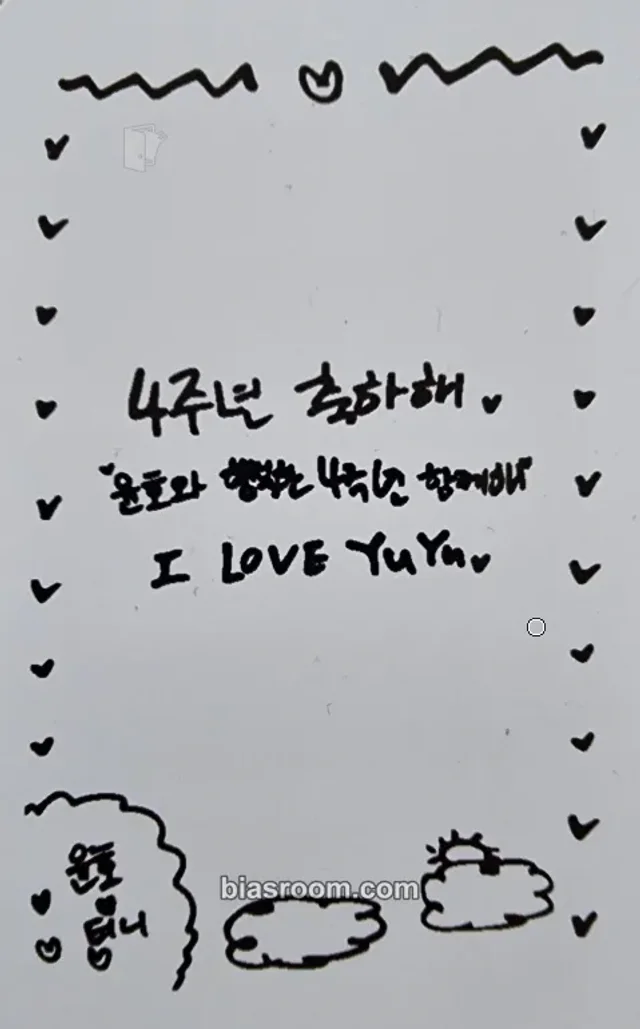 4주년 축하해
윤호와 행복한 4주년 함께해
I LOVE YuYu
윤호
biasroom.com